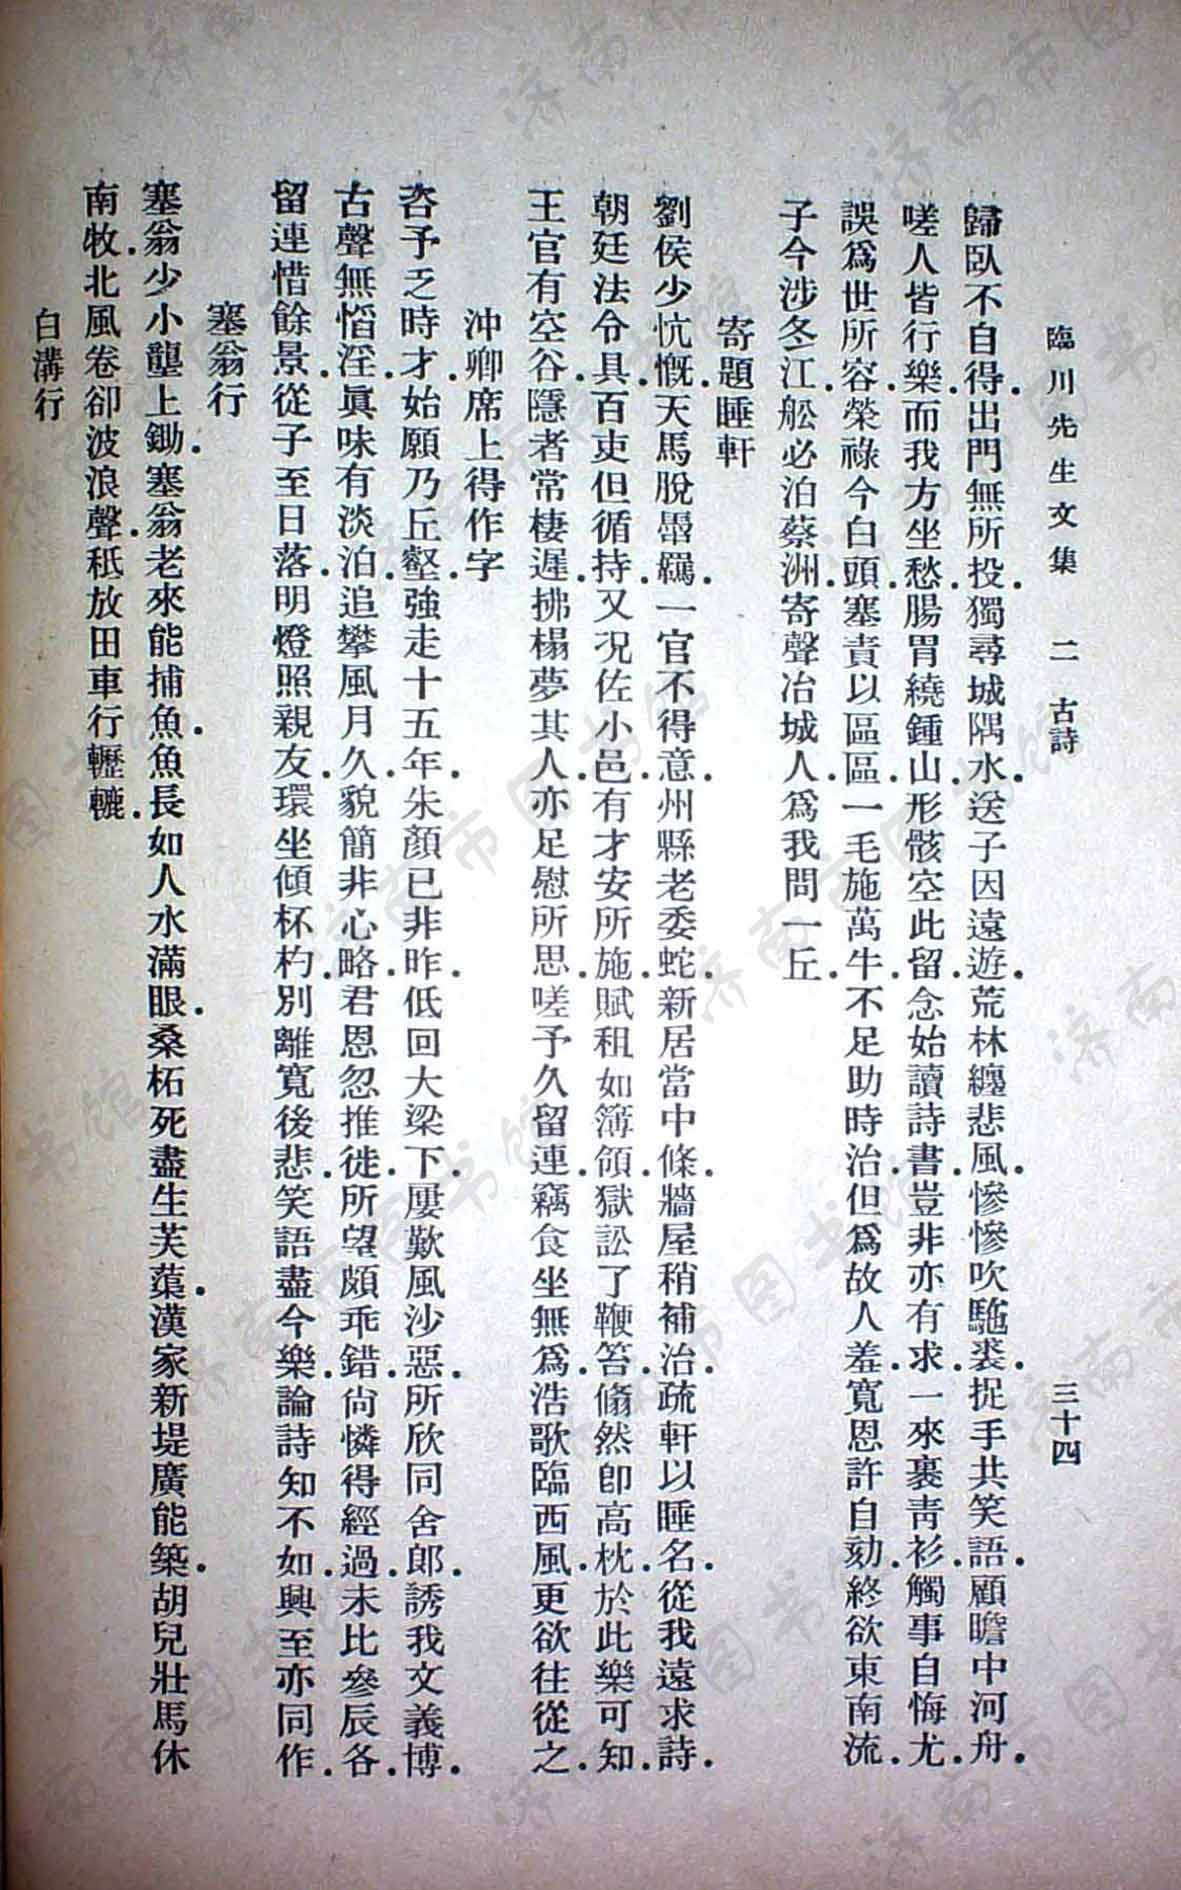 臨川先生文集　二　古詩　三十四
歸臥不自得．出門無所投．獨尋城隅水．送子因遠遊．荒林纏悲風．慘慘吹駞裘．捉手共笑語．顧瞻中河舟．
嗟人皆行樂．而我方坐愁．腸胃繞鍾山．形骸空此留．念始讀詩書．豈非亦有求．一來裹靑衫．觸事自悔尤．
誤爲世所容．榮祿今白頭．塞責以區區．一毛施萬牛．不足助時治．但爲故人羞．寬恩許自劾．終欲東南流．
子今涉冬江．舩必泊蔡洲．寄聲冶城人．爲我問一丘．
寄題睡軒
劉侯少忼慨．天馬脫羈．一官不得意．州縣老委蛇．新居當中條．牆屋稍補治．疏軒以睡名．從我遠求詩．
朝廷法令具．百吏但循持．又况佐小邑．有才安所施．賦租如簿領．獄訟了鞭笞．翛然卽高枕．於此樂可知．
王官有空谷．隱者常棲遲．拂榻夢其人．亦足慰所思．嗟予久留連．竊食坐無爲．浩歌臨西風．更欲往從之．
沖卿席上得作字
咨予乏時才．始願乃丘壑．強走十五年．朱顏已非昨．低回大梁下．屢歎風沙惡．所欣同舍郎．誘我文義博．
古聲無慆淫．眞味有淡泊．追攀風月久．貌簡非心略．君恩忽推徙．所望頗乖錯．尙憐得經過．未比參辰各．
留連惜餘景．從子至日落．明燈照親友．環坐傾杯杓．別離寬後悲．笑語盡今樂．論詩知不如．興至亦同作．
塞翁行
塞翁少小壟上鋤．塞翁老來能捕魚．魚長如人水滿眼．桑柘死盡生芙蕖．漢家新堤廣能築．胡兒壯馬休
南牧．北風卷卻波浪聲．秪放田車行轣轆．
白溝行
济南市图书馆